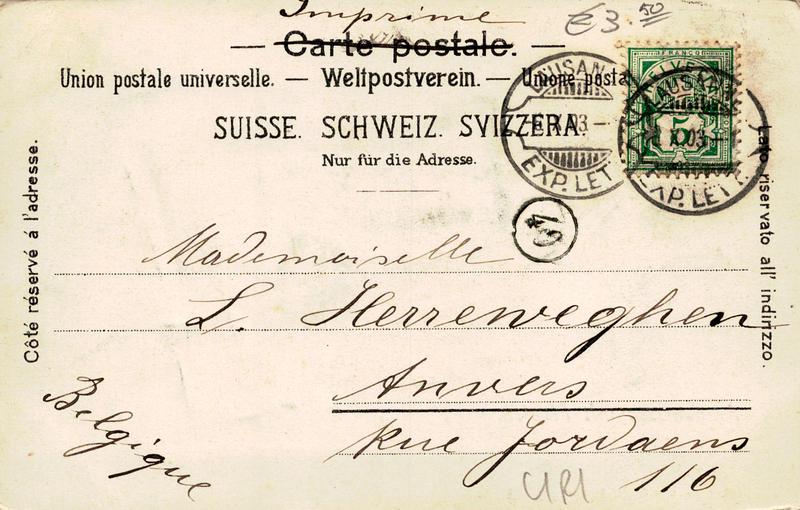 Imprime
€3 50
— Carte postale. —
Union postale universelle. — Weltpostverein. — Unione posta
SUISSE. SCHWEIZ. SVIZZERA.
Nur für die Adresse.
Côté réservé á l'adresse.
Lato riservato all' indirizzo.
FRANCO
HELVETIA
5
LAUSANNE
EXP. LETT.
LAUSANNE
EXP. LETT.
Mademoiselle
L. Herreweghen
Anvers
Rue Jordaens
116
Belgique